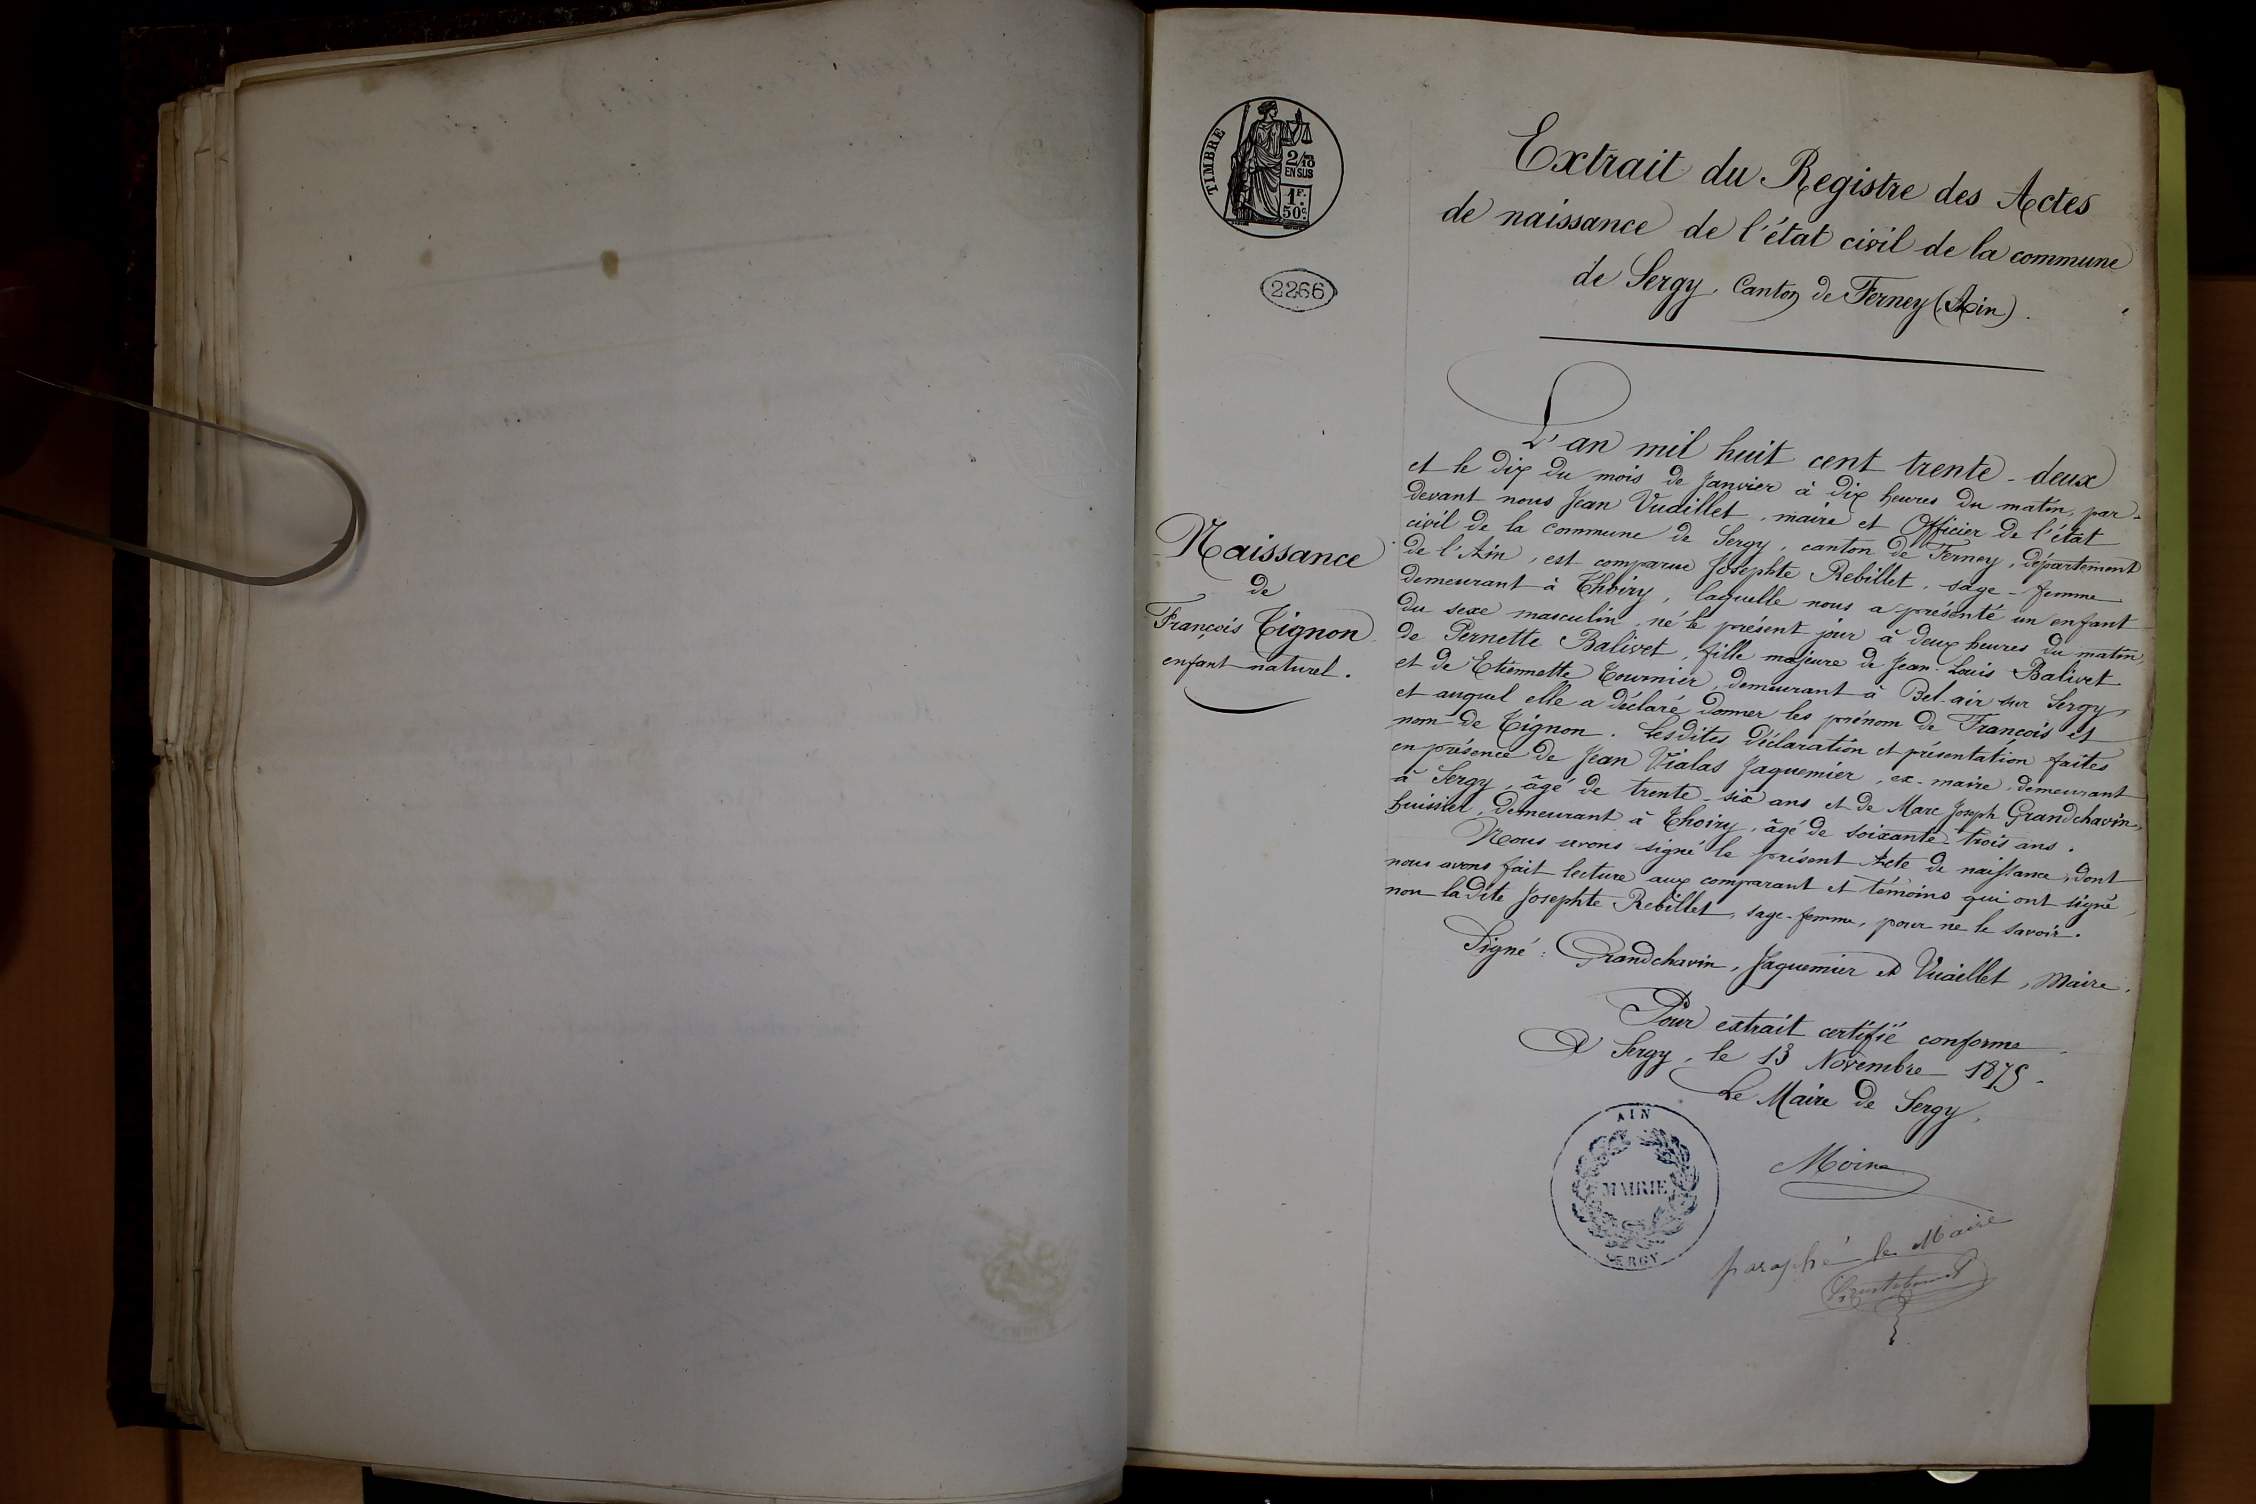 TIMBRE
2/10
EN SUS
1F.
50c
2266
Extrait du Registre des Actes
de naissance de l'état civil de la commune
de Sergy, Canton de Ferney (Ain).
Naissance
de
François Tignon
enfant naturel.
L'an mil huit cent trente-deux
et le dix du mois de Janvier à dix heures du matin, par-
devant nous Jean Vuaillet, maire et Officier de l'état
civil de la commune de Sergy, canton de Ferney, département
de l'Ain, est comparue Josephte Rebillet, sage-femme
demeurant à Thoiry, laquelle nous a présenté un enfant
du sexe masculin, né le présent jour à deux heures du matin,
de Pernette Balivet, fille majeure de Jean-Louis Balivet
et de Etiennette Tournier, demeurant à Bel-air sur Sergy,
et auquel elle a déclaré donner les prénom de François et
nom de Tignon. Lesdites déclaration et présentation faites
en présence de Jean Vialas Jaquemier, ex-maire, demeurant
à Sergy, âgé de trente-six ans et de Marc Joseph Grandchavin,
huissier, demeurant à Thoiry, âgé de soixante-trois ans.
Nous avons signé le présent Acte de naissance, dont
nous avons fait lecture aux comparant et témoins qui ont signé,
non ladite Josephte Rebillet, sage-femme, pour ne le savoir.
Signé: Grandchavin, Jaquemier et Vuaillet, Maire.
Pour extrait certifié conforme
A Sergy, le 13 Novembre 1875.
Le Maire de Sergy,
Moine
AIN
MAIRIE
SERGY
paraphé le Maire